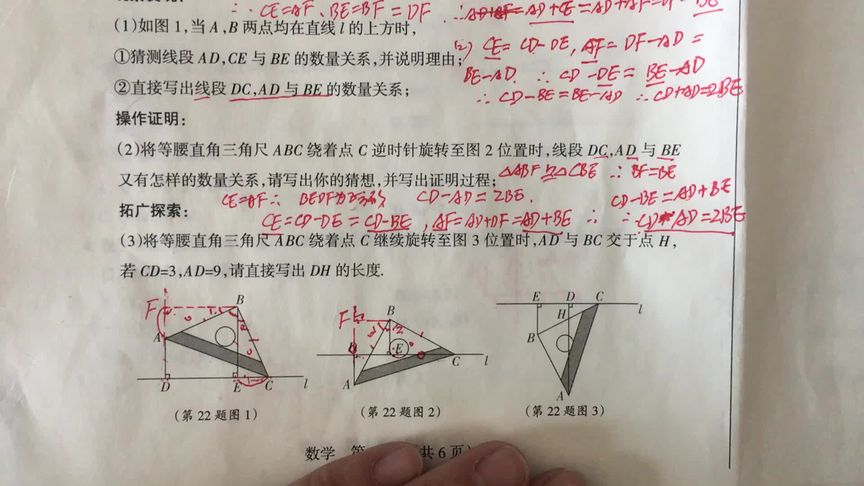 ∴ CE=AF. BE=BF=DF
(1)如图1,当A,B两点均在直线l的上方时,
①猜测线段AD,CE与BE的数量关系,并说明理由;
②直接写出线段DC,AD与BE的数量关系;
(2) CE=CD-DE, AF=DF-AD=
BE-AD. ∴ CD-DE=BE-AD
∴ CD-BE=BE-AD ∴ CD+AD=2BE
操作证明:
(2)将等腰直角三角尺ABC绕着点C逆时针旋转至图2位置时,线段DC,AD与BE
又有怎样的数量关系,请写出你的猜想,并写出证明过程;
△ABF≌△CBE ∴ BF=BE
CE=AF ∴ BEDF为正方形 CD-AD=2BE. CD-BE=AD+BE
拓广探索:
CE=CD-DE=CD-BE, AF=AD+DF=AD+BE ∴ ∴ CD-AD=2BE
(3)将等腰直角三角尺ABC绕着点C继续旋转至图3位置时,AD与BC交于点H,
若CD=3,AD=9,请直接写出DH的长度.
F B A D E C l
F B E A C l
E D C l H B A
(第22题图1)
(第22题图2)
(第22题图3)
数学 第 共6页)